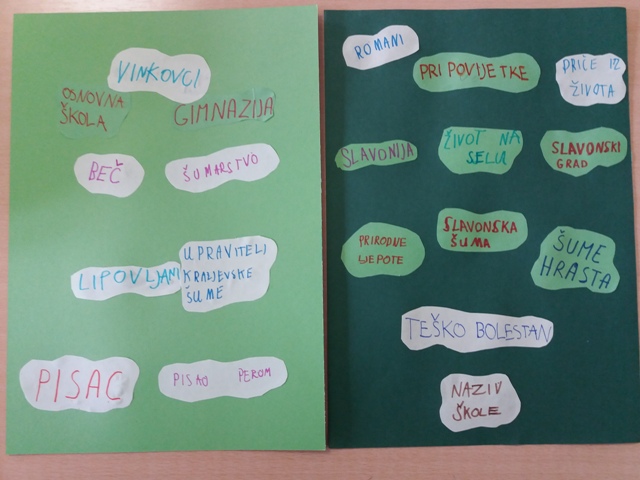 VINKOVCI
OSNOVNA
ŠKOLA
GIMNAZIJA
BEČ
ŠUMARSTVO
LIPOVLJANI
UPRAVITELJ
KRALJEVSKE
ŠUME
PISAC
PISAO PEROM
ROMANI
PRIPOVIJETKE
PRIČE IZ
ŽIVOTA
SLAVONIJA
ŽIVOT NA
SELU
SLAVONSKI
GRAD
PRIRODNE
LJEPOTE
SLAVONSKA
ŠUMA
ŠUME
HRASTA
TEŠKO BOLESTAN
NAZIV
ŠKOLE